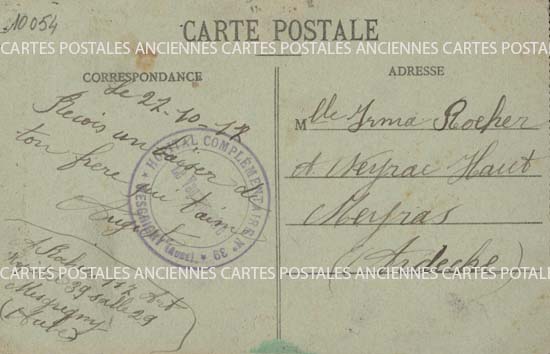 10054
CARTE POSTALE
CARTES POSTALES ANCIENNES CARTES POSTALES ANCIENNES CARTES POSTALES
CORRESPONDANCE
ADRESSE
Le 27-10-17
Reçois un baiser de
ton frère qui t'aime
August
HOPITAL COMPLÉMENTAIRE N° 39
MESGRIGNY (AUBE)
A Rocher 112 Art
39 Salle 29
Mesgrigny
(Aube)
Mlle Irma Rocher
A Neyrac Haut
Meyras
(Ardèche)
CARTES POSTALES ANCIENNES CARTES POSTALES ANCIENNES CARTES POSTALES